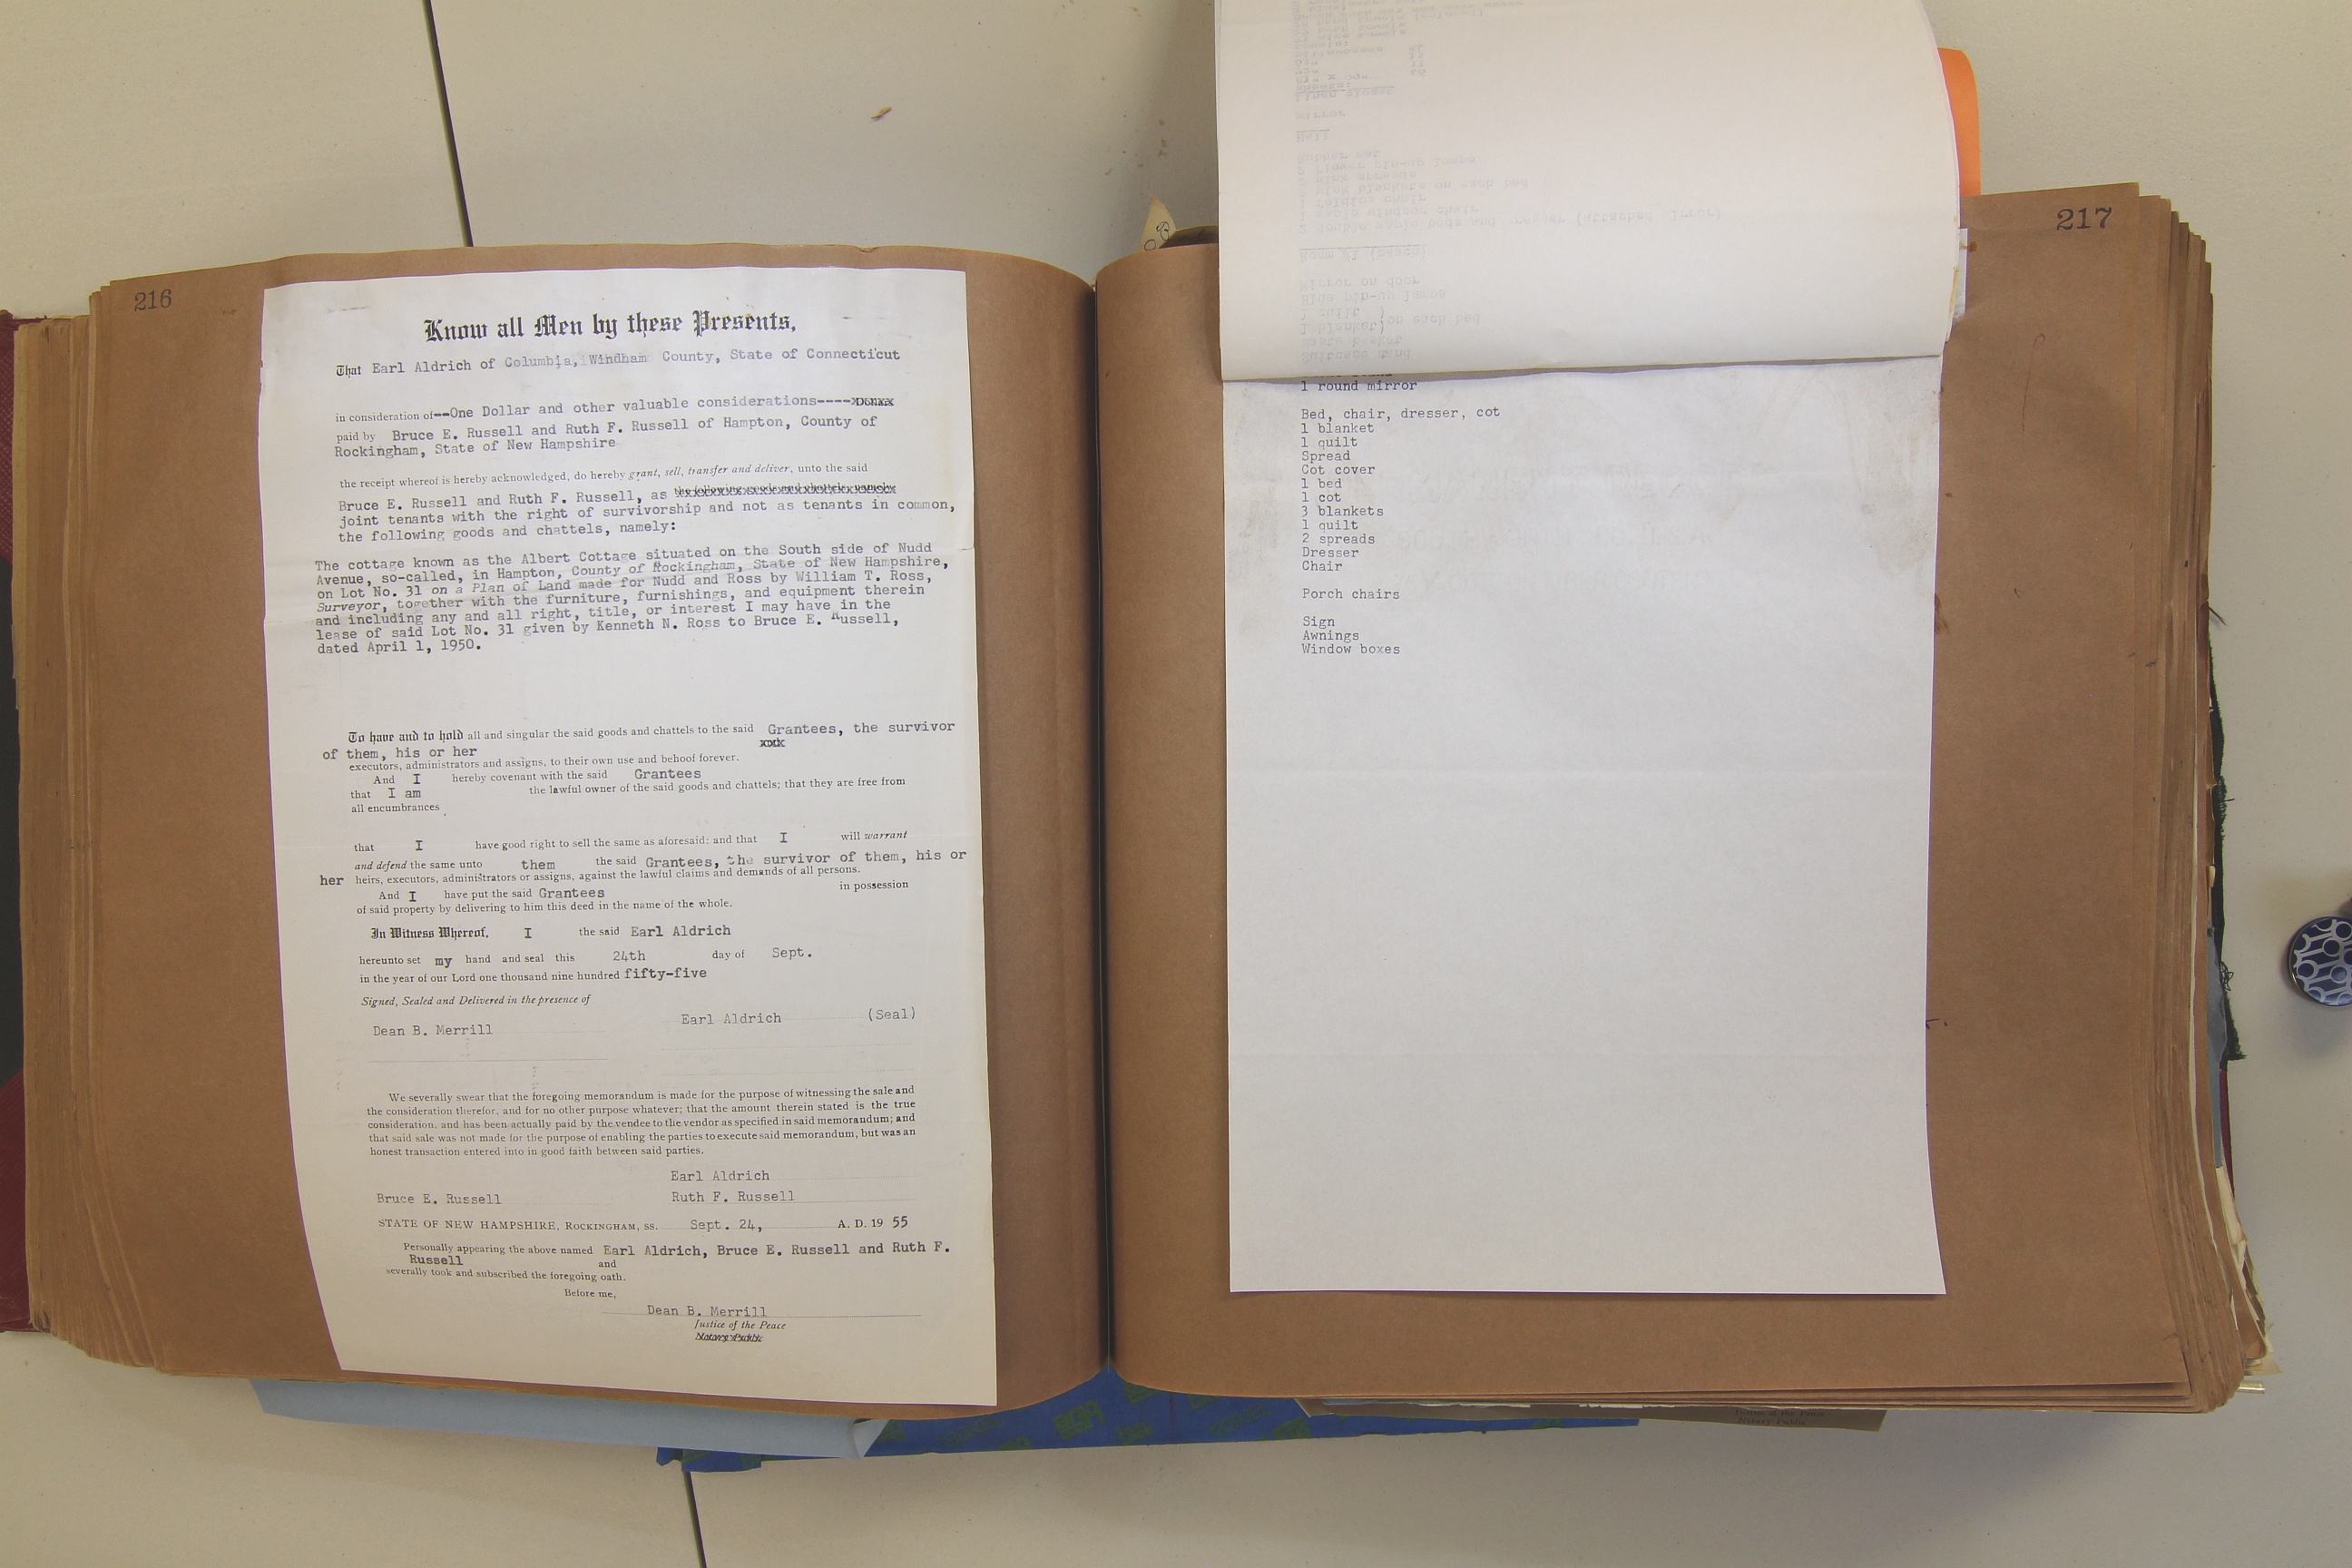 216
Know all Men by these Presents,
That Earl Aldrich of Columbia, Windham County, State of Connecticut
in consideration of--One Dollar and other valuable considerations----
paid by Bruce E. Russell and Ruth F. Russell of Hampton, County of
Rockingham, State of New Hampshire
the receipt whereof is hereby acknowledged, do hereby grant, sell, transfer and deliver, unto the said
the following goods and chattels, namely
Bruce E. Russell and Ruth F. Russell, as
joint tenants with the right of survivorship and not as tenants in common,
the following goods and chattels, namely:
The cottage known as the Albert Cottage situated on the South side of Nudd
Avenue, so-called, in Hampton, County of Rockingham, State of New Hampshire,
on Lot No. 31 on a Plan of Land made for Nudd and Ross by William T. Ross,
Surveyor, together with the furniture, furnishings, and equipment therein
and including any and all right, title, or interest I may have in the
lease of said Lot No. 31 given by Kenneth N. Ross to Bruce E. Russell,
dated April 1, 1950.
To have and to hold all and singular the said goods and chattels to the said Grantees, the survivor
of them, his or her
executors, administrators and assigns, to their own use and behoof forever.
And I hereby covenant with the said Grantees
that I am the lawful owner of the said goods and chattels; that they are free from
all encumbrances
that I have good right to sell the same as aforesaid: and that I will warrant
and defend the same unto them the said Grantees, the survivor of them, his or
her heirs, executors, administrators or assigns, against the lawful claims and demands of all persons.
And I have put the said Grantees in possession
of said property by delivering to him this deed in the name of the whole.
In Witness Whereof, I the said Earl Aldrich
hereunto set my hand and seal this 24th day of Sept.
in the year of our Lord one thousand nine hundred fifty-five
Signed, Sealed and Delivered in the presence of
Earl Aldrich (Seal)
Dean B. Merrill
We severally swear that the foregoing memorandum is made for the purpose of witnessing the sale and
the consideration therefor, and for no other purpose whatever; that the amount therein stated is the true
consideration, and has been actually paid by the vendee to the vendor as specified in said memorandum; and
that said sale was not made for the purpose of enabling the parties to execute said memorandum, but was an
honest transaction entered into in good faith between said parties.
Earl Aldrich
Bruce E. Russell Ruth F. Russell
STATE OF NEW HAMPSHIRE, ROCKINGHAM, SS. Sept. 24, A. D. 19 55
Personally appearing the above named Earl Aldrich, Bruce E. Russell and Ruth F.
Russell and
severally took and subscribed the foregoing oath.
Before me,
Dean B. Merrill
Justice of the Peace
Notary Public
217
1 round mirror
Bed, chair, dresser, cot
1 blanket
1 quilt
Spread
Cot cover
1 bed
1 cot
3 blankets
1 quilt
2 spreads
Dresser
Chair
Porch chairs
Sign
Awnings
Window boxes
Justice of the Peace
Notary Public